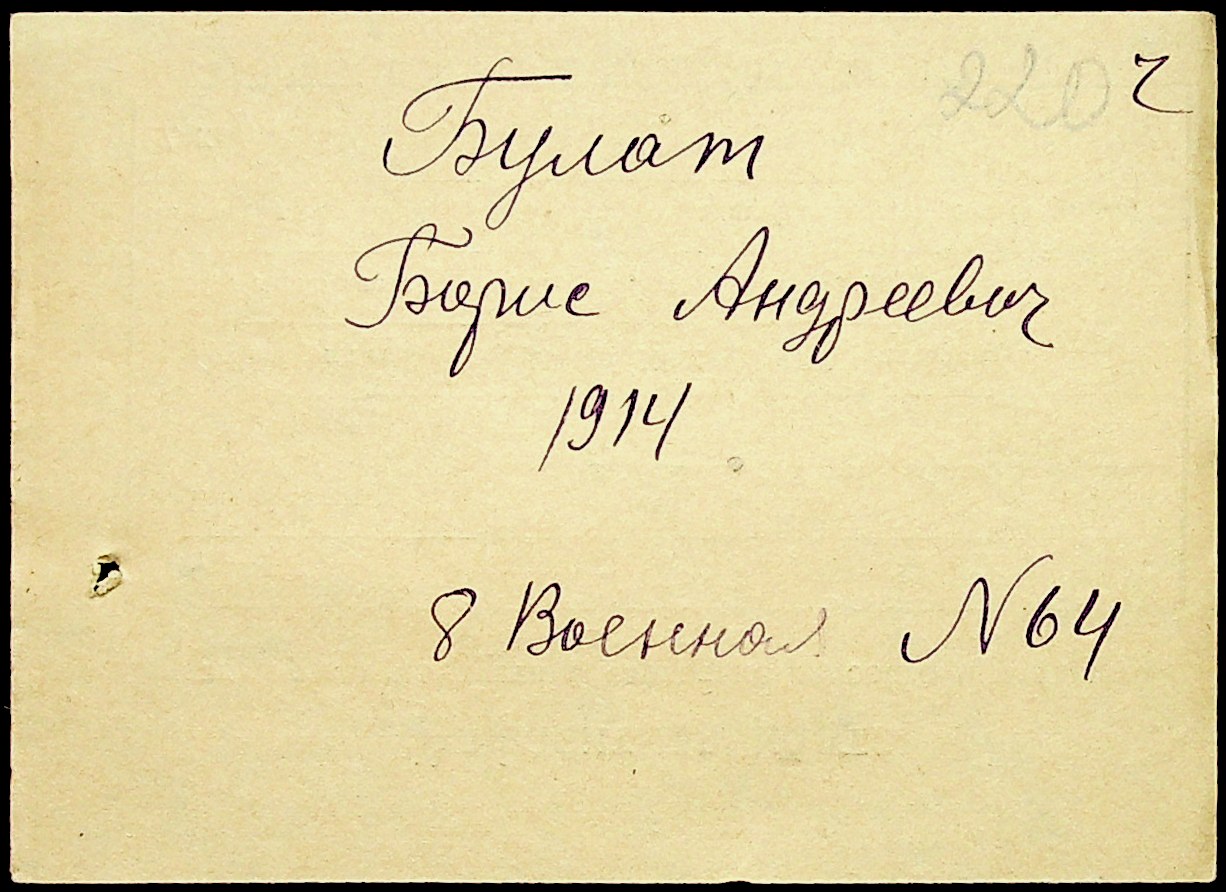 220 ч
Булат
Борис Андреевич
1914
8 Военная N64